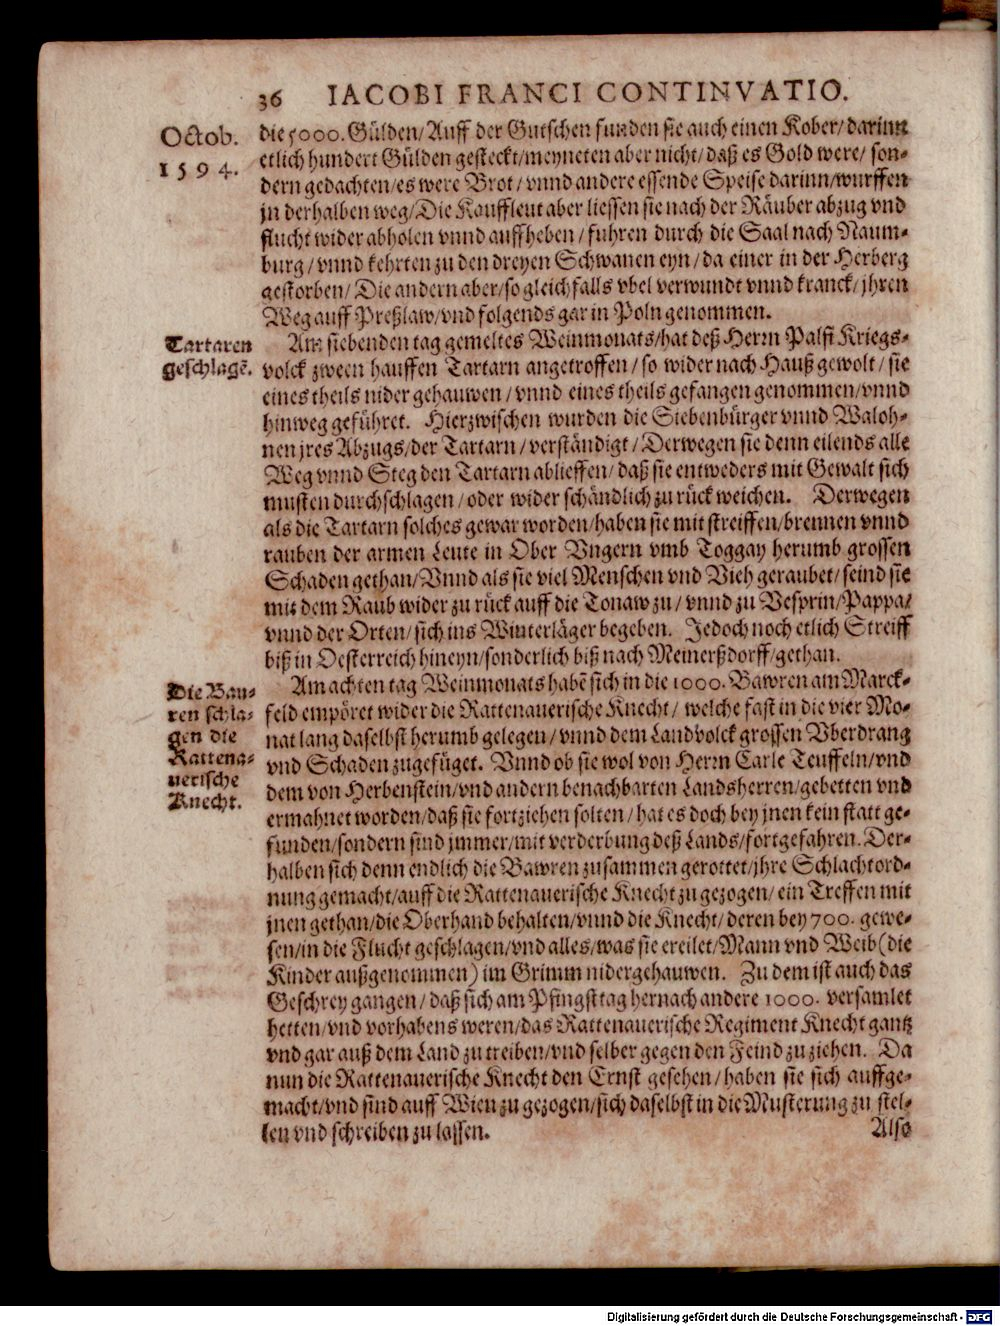 36 IACOBI FRANCI CONTINVATIO.
Octob.
1594.
die 5000. Gülden/ Auff der Gutschen funden sie auch einen Kober/ darinn
etlich hundert Gülden gesteckt/ meyneten aber nicht/ daß es Gold were/ son-
dern gedachten/ es were Brot/ vnnd andere essende Speise darinn/ wurffen
jn derhalben weg/ Die Kauffleut aber liessen sie nach der Räuber abzug vnd
flucht wider abholen vnnd auffheben/ fuhren durch die Saal nach Naum-
burg/ vnnd kehrten zu den dreyen Schwanen eyn/ da einer in der Herberg
gestorben/ Die andern aber/ so gleichfalls vbel verwundt vnnd kranck/ jhren
Weg auff Preßlaw/ vnd folgends gar in Poln genommen.
Tartaren
geschlagē.
Am siebenden tag gemeltes Weinmonats/ hat deß Herrn Palfi Kriegs-
volck zween hauffen Tartarn angetroffen/ so wider nach Hauß gewolt/ sie
eines theils nider gehauwen/ vnnd eines theils gefangen genommen/ vnnd
hinweg geführet. Hierzwischen wurden die Siebenbürger vnnd Waloh-
nen jres Abzugs/ der Tartarn/ verständigt/ Derwegen sie denn eilends alle
Weg vnnd Steg den Tartarn ablieffen/ daß sie entweders mit Gewalt sich
musten durchschlagen/ oder wider schändlich zu rück weichen. Derwegen
als die Tartarn solches gewar worden/ haben sie mit streiffen/ brennen vnnd
rauben der armen Leute in Ober Vngern vmb Toggay herumb grossen
Schaden gethan/ Vnnd als sie viel Menschen vnd Vieh geraubet/ seind sie
mit dem Raub wider zu rück auff die Tonaw zu/ vnnd zu Vesprin/ Pappa/
vnnd der Orten/ sich ins Winterläger begeben. Jedoch noch etlich Streiff
biß in Oesterreich hineyn/ sonderlich biß nach Meinerßdorff/ gethan.
Die Bau-
ren schla-
gen die
Rattena-
uerische
Knecht.
Am achten tag Weinmonats habē sich in die 1000. Bawren am Marck-
feld empöret wider die Rattenauerische Knecht/ welche fast in die vier Mo-
nat lang daselbst herumb gelegen/ vnnd dem Landvolck grossen Vberdrang
vnd Schaden zugefüget. Vnnd ob sie wol von Herrn Carle Teuffeln/ vnd
dem von Herbenstein/ vnd andern benachbarten Landsherren/ gebetten vnd
ermahnet worden/ daß sie fortziehen solten/ hat es doch bey jnen kein statt ge-
funden/ sondern sind jmmer/ mit verderbung deß Lands/ fortgefahren. Der-
halben sich denn endlich die Bawren zusammen gerottet/ jhre Schlachtord-
nung gemacht/ auff die Rattenauerische Knecht zu gezogen/ ein Treffen mit
jnen gethan/ die Oberhand behalten/ vnnd die Knecht/ deren bey 700. gewe-
sen/ in die Flucht geschlagen/ vnd alles/ was sie ereilet/ Mann vnd Weib (die
Kinder außgenommen) im Grimm nidergehauwen. Zu dem ist auch das
Geschrey gangen/ daß sich am Pfingsttag hernach andere 1000. versamlet
hetten/ vnd vorhabens weren/ das Rattenauerische Regiment Knecht gantz
vnd gar auß dem Land zu treiben/ vnd selber gegen den Feind zu ziehen. Da
nun die Rattenauerische Knecht den Ernst gesehen/ haben sie sich auffge-
macht/ vnd sind auff Wien zu gezogen/ sich daselbst in die Musterung zu stel-
len vnd schreiben zu lassen.
Also
Digitalisierung gefördert durch die Deutsche Forschungsgemeinschaft - DFG